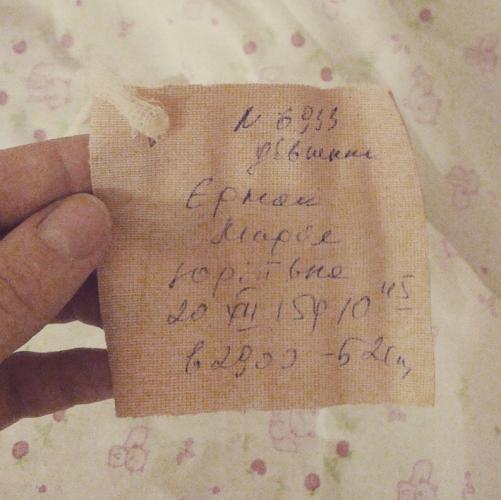 N 6933
дівчинка
Єрмак
Марія
Юріївна
20 XII 15р 10⁴⁵
в 2900 - 52см